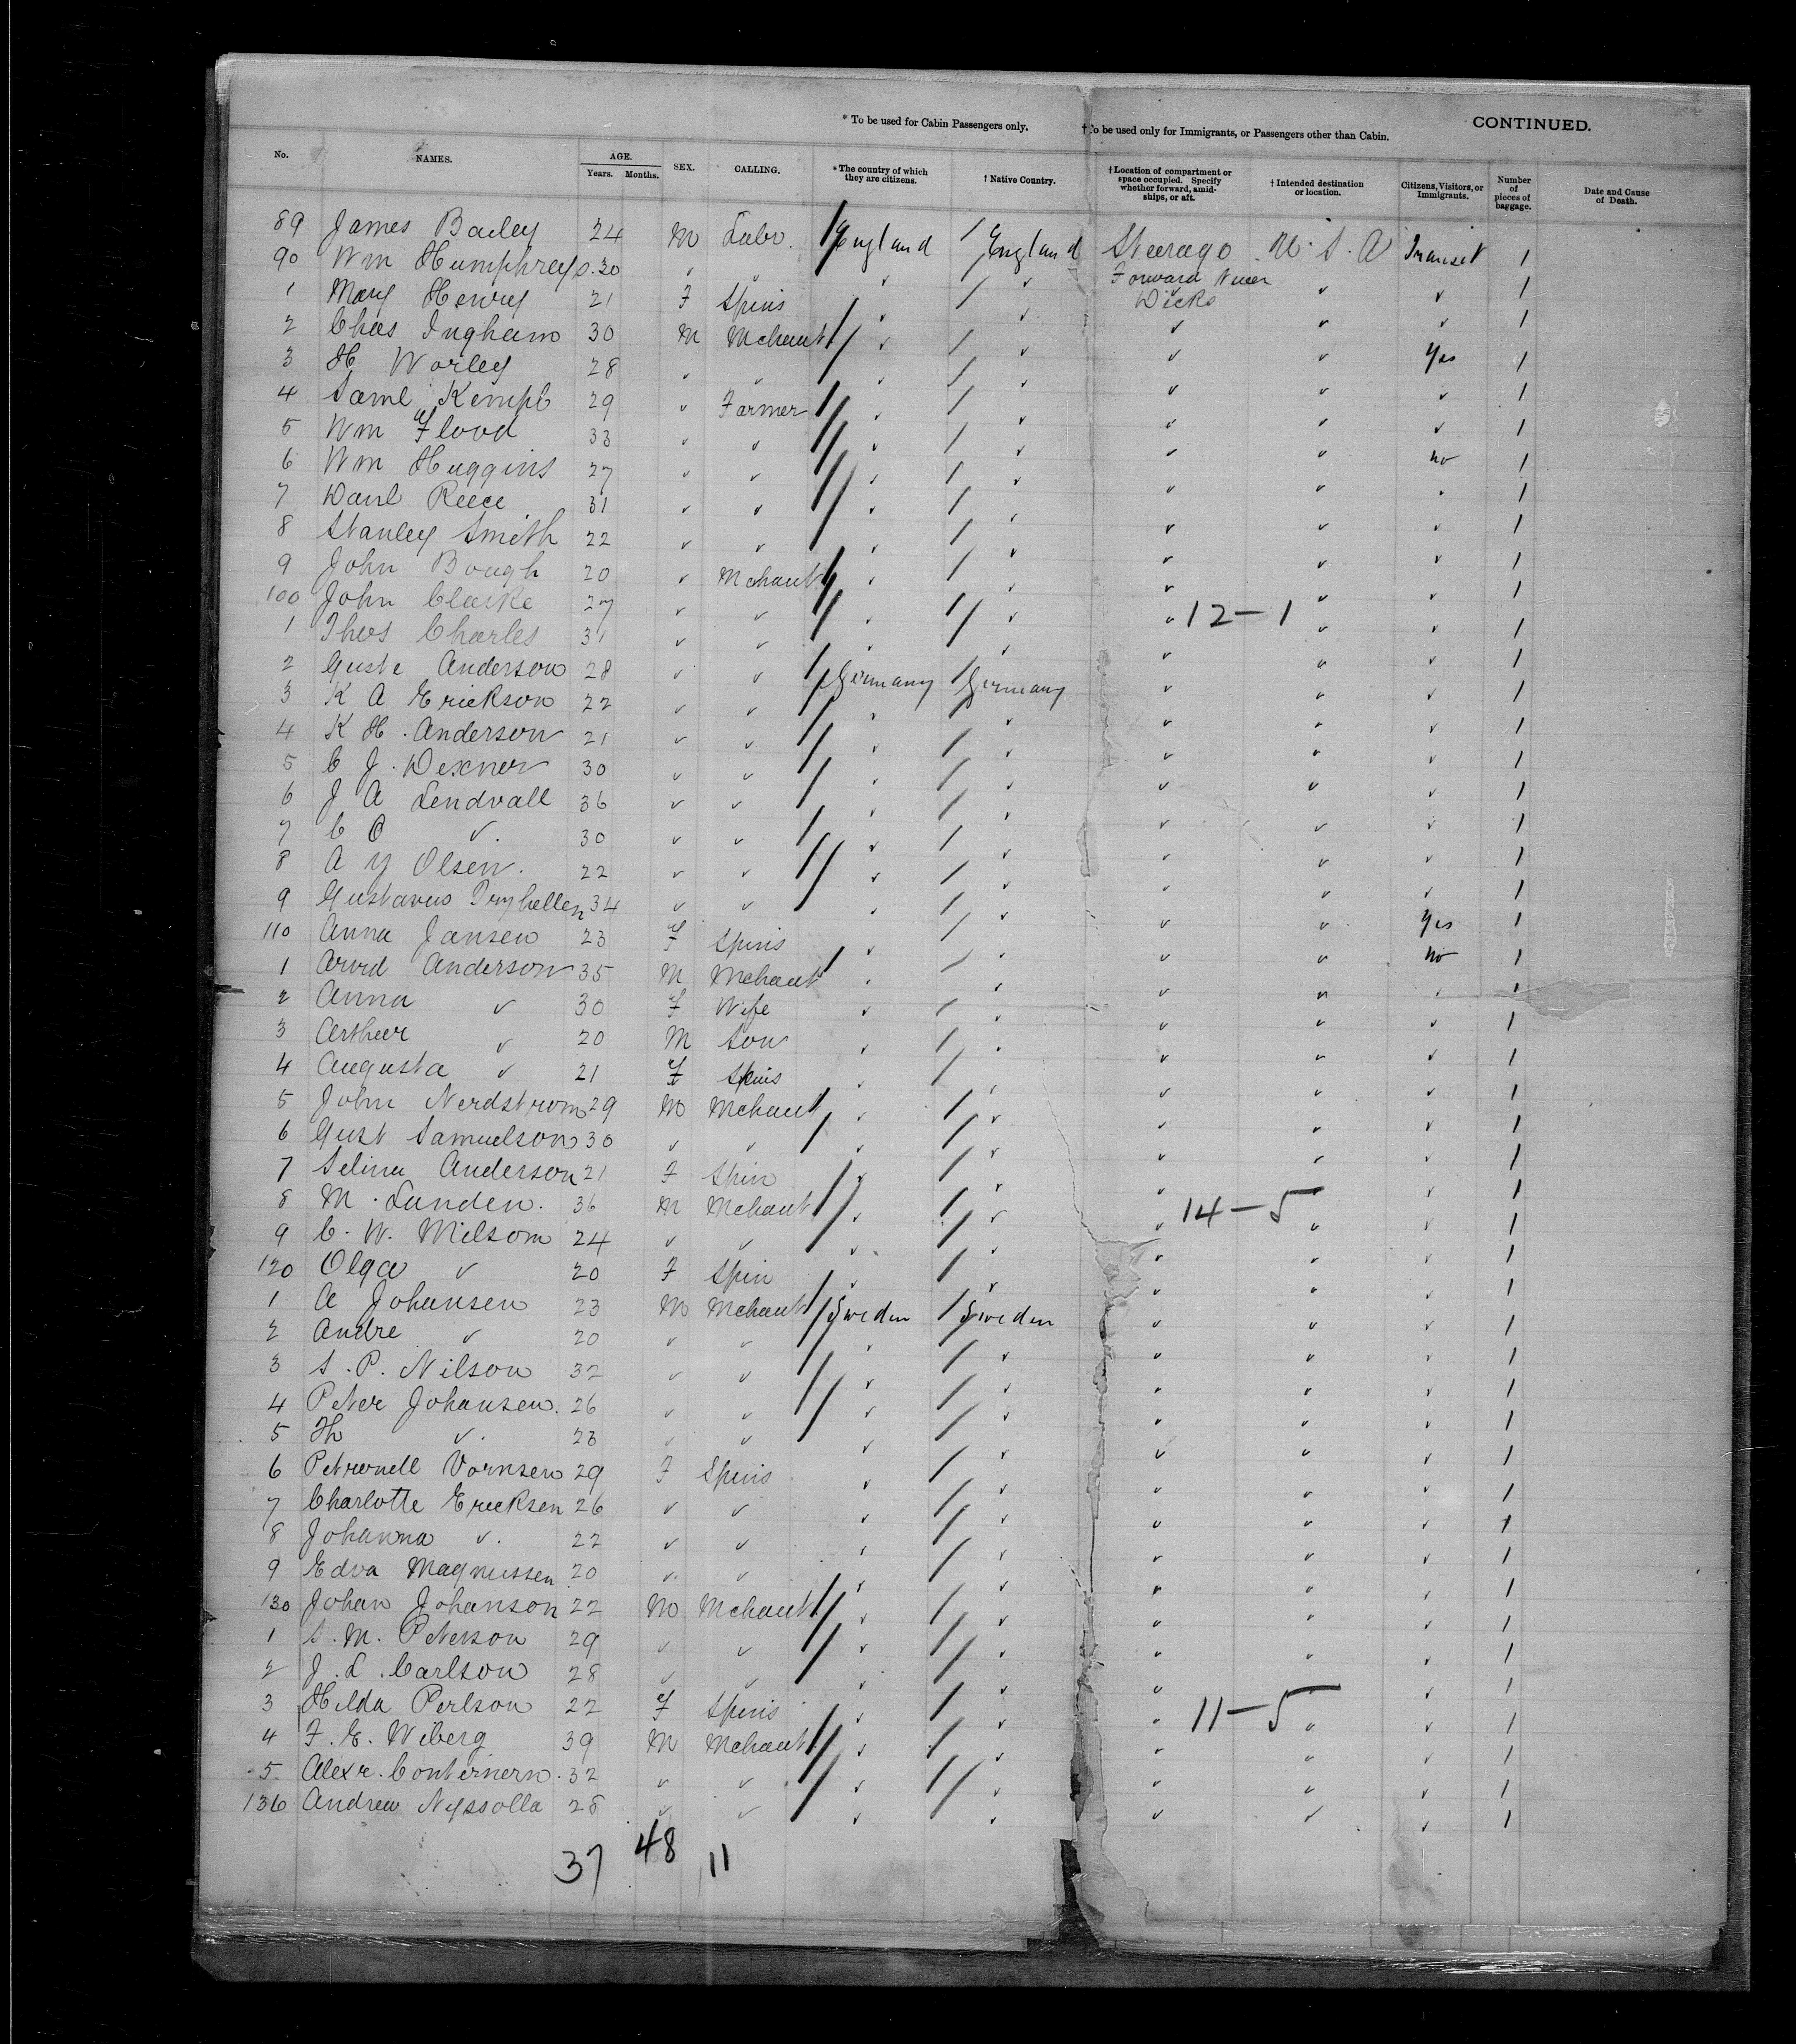 * To be used for Cabin Passengers only. † To be used only for Immigrants, or Passengers other than Cabin. CONTINUED.
No. NAMES. AGE. Years. Months. SEX. CALLING. * The country of which they are citizens. † Native Country. † Location of compartment or space occupied. Specify whether forward, amidships, or aft. † Intended destination or location. Citizens, Visitors, or Immigrants. Number of pieces of baggage. Date and Cause of Death.
89 James Bailey 24 M Labr. England England Steerage U.S.A Transit 1
90 Wm Humphreys. 30 ✓ ✓ ✓ ✓ Forward ✓ ✓ 1
1 Mary Henry 21 F Spins ✓ ✓ ✓ ✓ ✓ 1
2 Chas Ingham 30 M Mchant ✓ ✓ ✓ ✓ Yes 1
3 H Worley 28 ✓ ✓ ✓ ✓ ✓ ✓ ✓ 1
4 Saml Kempt 29 ✓ Farmer ✓ ✓ ✓ ✓ ✓ 1
5 Wm Flood 33 ✓ ✓ ✓ ✓ ✓ ✓ no 1
6 Wm Huggins 27 ✓ ✓ ✓ ✓ ✓ ✓ ✓ 1
7 Danl Reece 31 ✓ ✓ ✓ ✓ ✓ ✓ ✓ 1
8 Stanley Smith 22 ✓ ✓ ✓ ✓ ✓ ✓ ✓ 1
9 John Bough 20 ✓ Mchant ✓ ✓ ✓ ✓ ✓ 1
100 John Clarke 27 ✓ ✓ ✓ ✓ ✓ 12-1 ✓ ✓ 1
1 Thos Charles 31 ✓ ✓ ✓ ✓ ✓ ✓ ✓ 1
2 Guste Anderson 28 ✓ ✓ Germany Germany ✓ ✓ ✓ 1
3 K A Erickson 22 ✓ ✓ ✓ ✓ ✓ ✓ ✓ 1
4 K H. Anderson 21 ✓ ✓ ✓ ✓ ✓ ✓ ✓ 1
5 C J. Dexner 30 ✓ ✓ ✓ ✓ ✓ ✓ ✓ 1
6 J A Lendvall 36 ✓ ✓ ✓ ✓ ✓ ✓ ✓ 1
7 C O ✓. 30 ✓ ✓ ✓ ✓ ✓ ✓ ✓ 1
8 A Y Olsen. 22 ✓ ✓ ✓ ✓ ✓ ✓ ✓ 1
9 Gustavus 34 ✓ ✓ ✓ ✓ ✓ ✓ Yes 1
110 Anna Jansen 23 F Spins ✓ ✓ ✓ ✓ no 1
1 Arvid Anderson 35 M Mchant ✓ ✓ ✓ ✓ ✓ 1
2 Anna ✓ 30 F Wife ✓ ✓ ✓ ✓ ✓ 1
3 Arthur ✓ 20 M Son ✓ ✓ ✓ ✓ ✓ 1
4 Augusta ✓ 21 F Spins ✓ ✓ ✓ ✓ ✓ 1
5 John Nerdstrom 29 M Mchant ✓ ✓ ✓ ✓ ✓ 1
6 Gust Samuelson 30 ✓ ✓ ✓ ✓ ✓ ✓ ✓ 1
7 Selina Anderson 21 F Spin ✓ ✓ ✓ ✓ ✓ 1
8 M. Lunden. 36 M Mchant ✓ ✓ ✓ 14-5 ✓ ✓ 1
9 C. W. Milsom 24 ✓ ✓ ✓ ✓ ✓ ✓ ✓ 1
120 Olga ✓ 20 F Spin ✓ ✓ ✓ ✓ ✓ 1
1 A Johansen 23 M Mchant Sweden Sweden ✓ ✓ ✓ 1
2 Andre ✓ 20 ✓ ✓ ✓ ✓ ✓ ✓ ✓ 1
3 S. P. Nilson 32 ✓ ✓ ✓ ✓ ✓ ✓ ✓ 1
4 Peter Johansen. 26 ✓ ✓ ✓ ✓ ✓ ✓ ✓ 1
5 Th ✓. 23 ✓ ✓ ✓ ✓ ✓ ✓ ✓ 1
6 Petronell Vornsen 29 F Spins ✓ ✓ ✓ ✓ ✓ 1
7 Charlotte Ericksen 26 ✓ ✓ ✓ ✓ ✓ ✓ ✓ 1
8 Johanna ✓. 22 ✓ ✓ ✓ ✓ ✓ ✓ ✓ 1
9 Edva Magnussen 20 ✓ ✓ ✓ ✓ ✓ ✓ ✓ 1
130 Johan Johanson 22 M Mchant ✓ ✓ ✓ ✓ ✓ 1
1 S. M. Peterson 29 ✓ ✓ ✓ ✓ ✓ ✓ ✓ 1
2 J. L. Carlson 28 ✓ ✓ ✓ ✓ ✓ ✓ ✓ 1
3 Hilda Perlson 22 F Spins ✓ ✓ ✓ 11-5 ✓ ✓ 1
4 F. E. Wiberg 39 M Mchant ✓ ✓ ✓ ✓ ✓ 1
5 Alexr. 32 ✓ ✓ ✓ ✓ ✓ ✓ ✓ 1
136 Andrew Nyssolla 28 ✓ ✓ ✓ ✓ ✓ ✓ ✓ 1
37 48 11